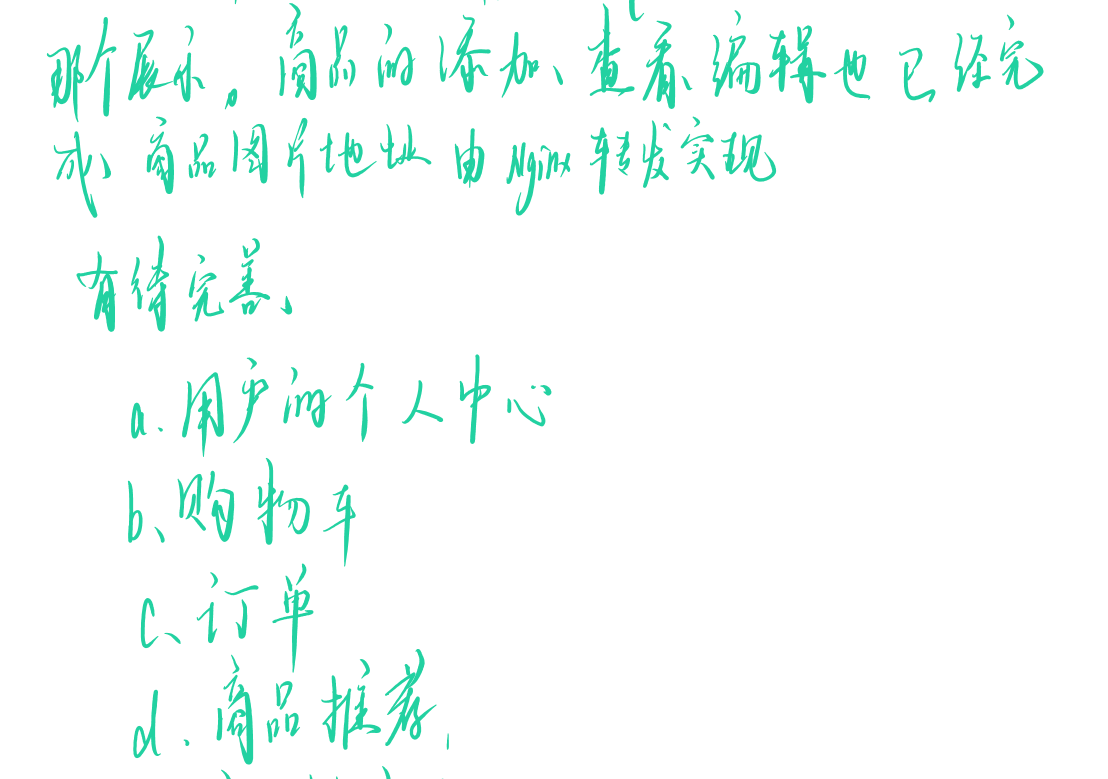 那个展示。商品的添加、查看、编辑也已经完
成、商品图片地址由Nginx转发实现
有待完善、
a.用户的个人中心
b、购物车
c、订单
d.商品推荐,